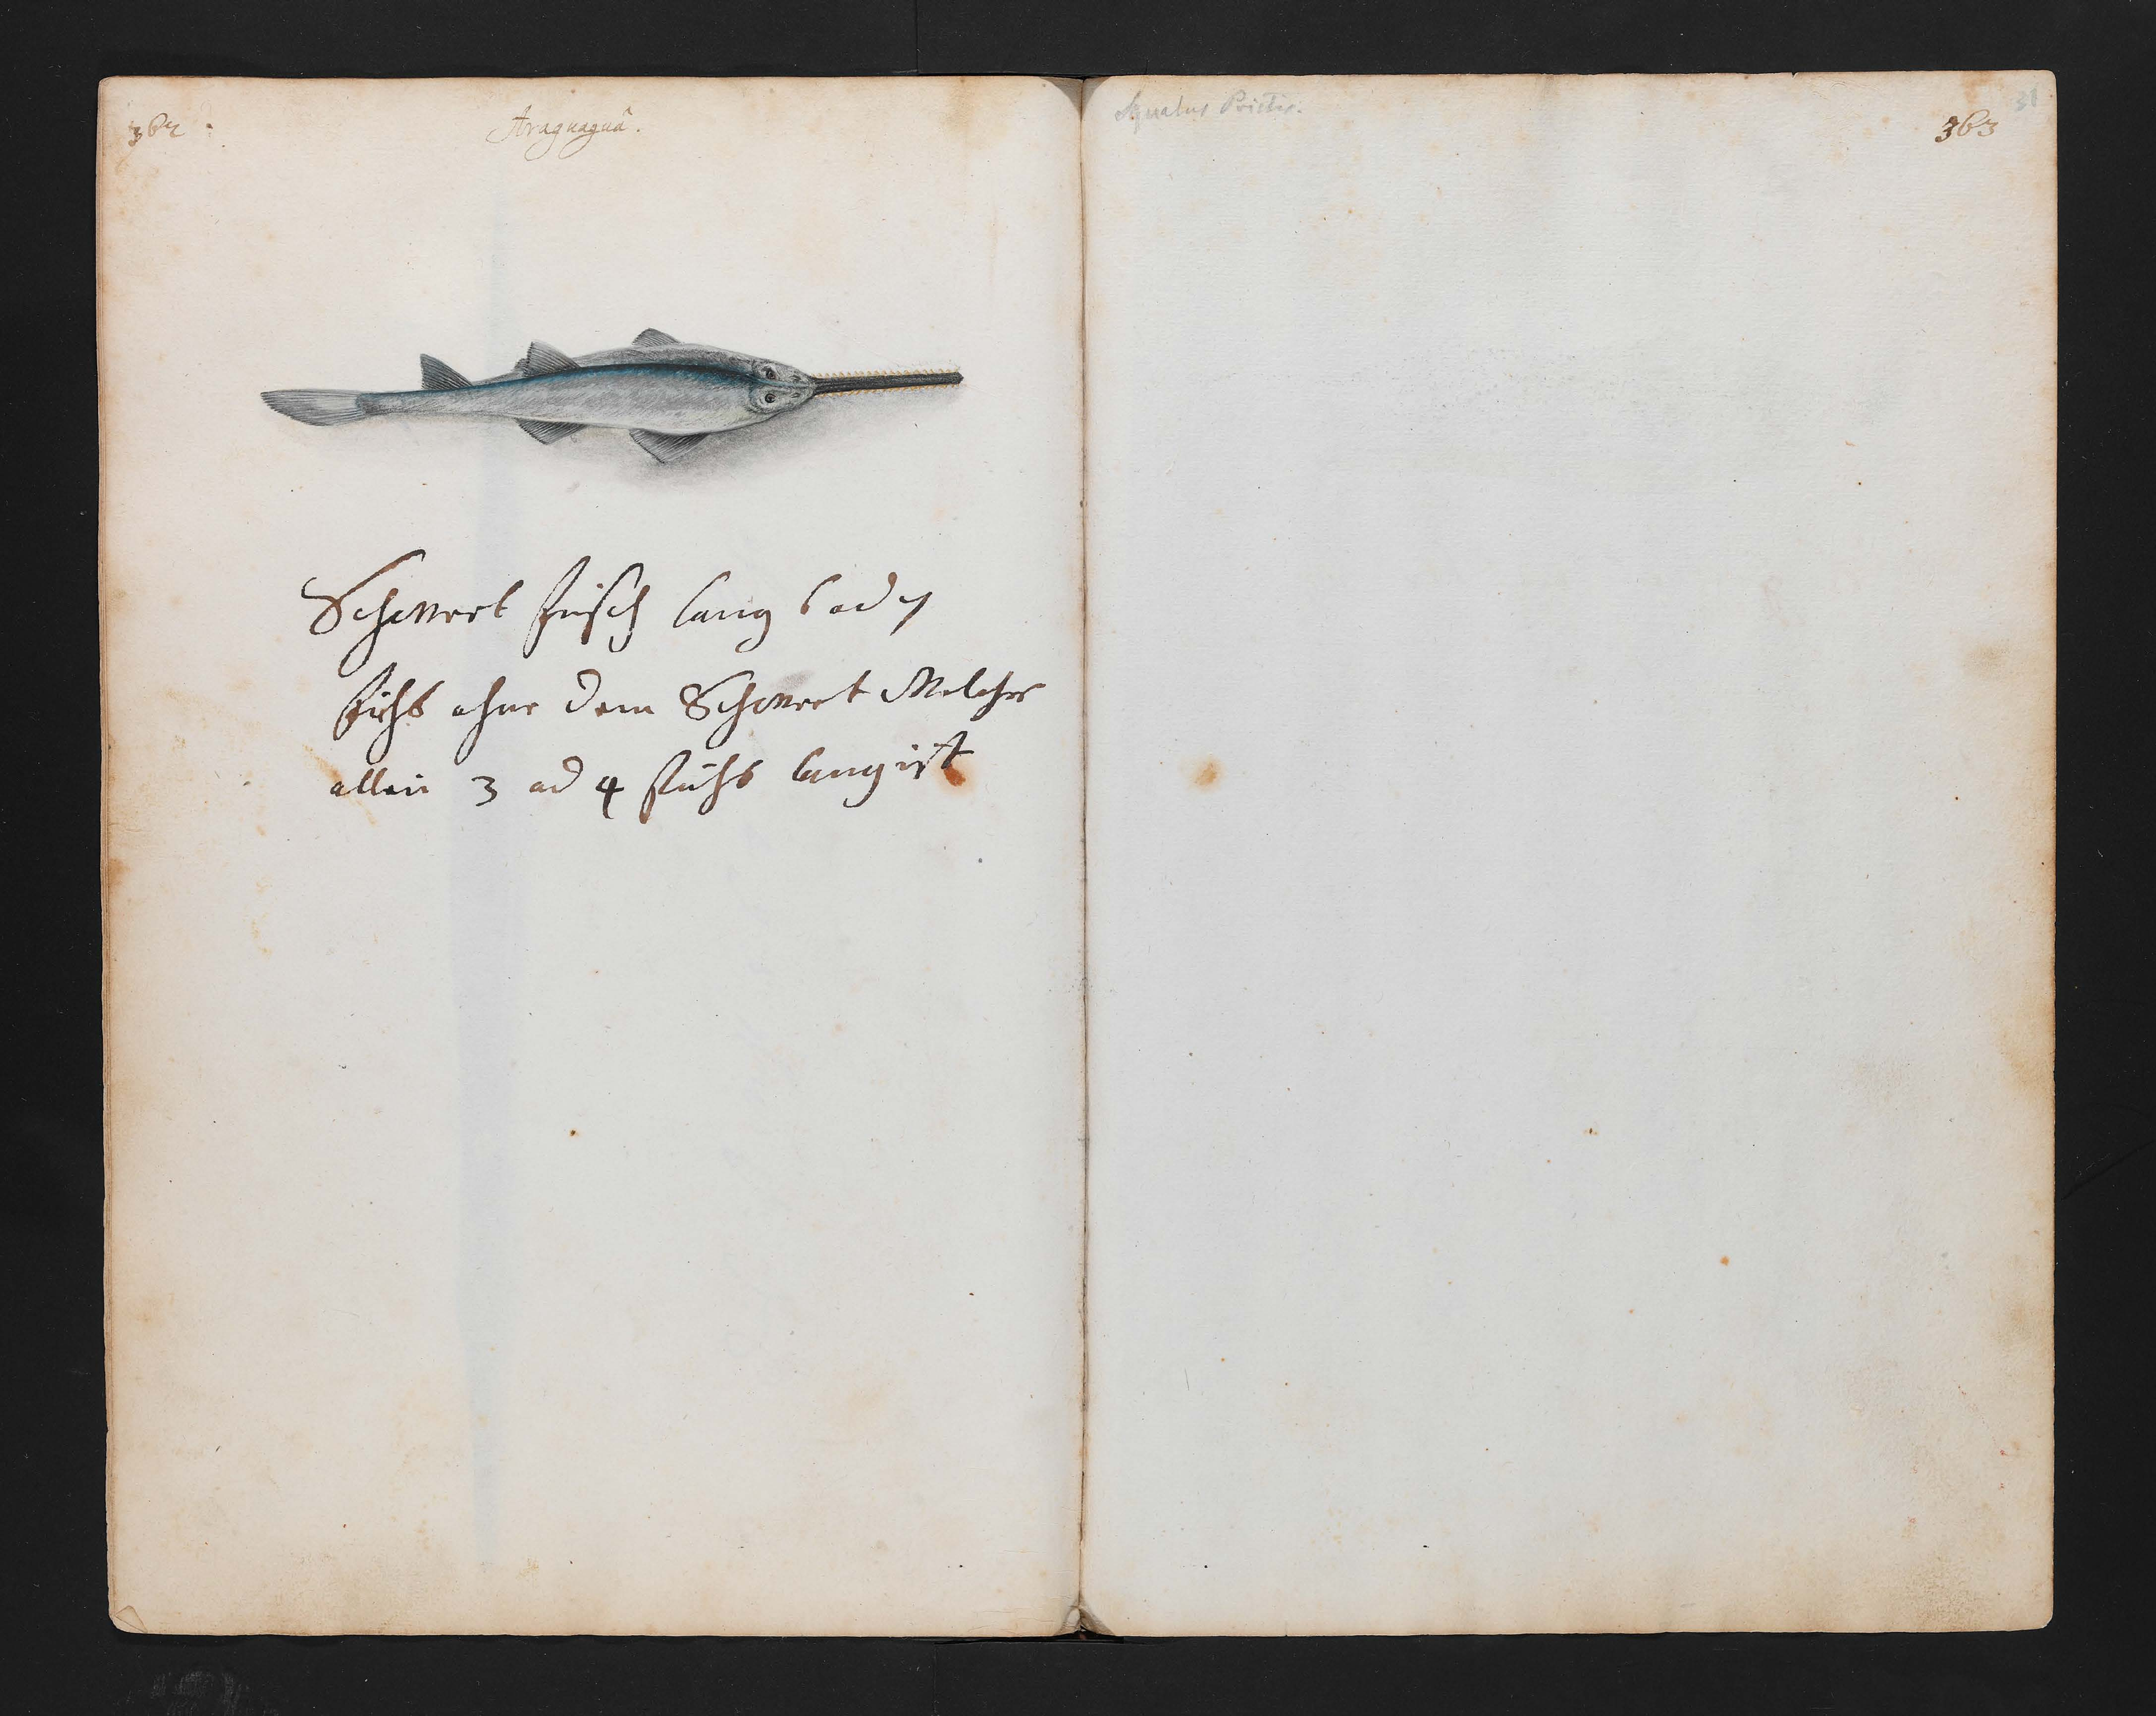 362
Araguaguâ.
Schwert fiesch lang 6 ad 7
fuhs ohne dem Schwert Welches
allein 3 ad 4 fuhs lang ist
Squalus Pristis.
31
363